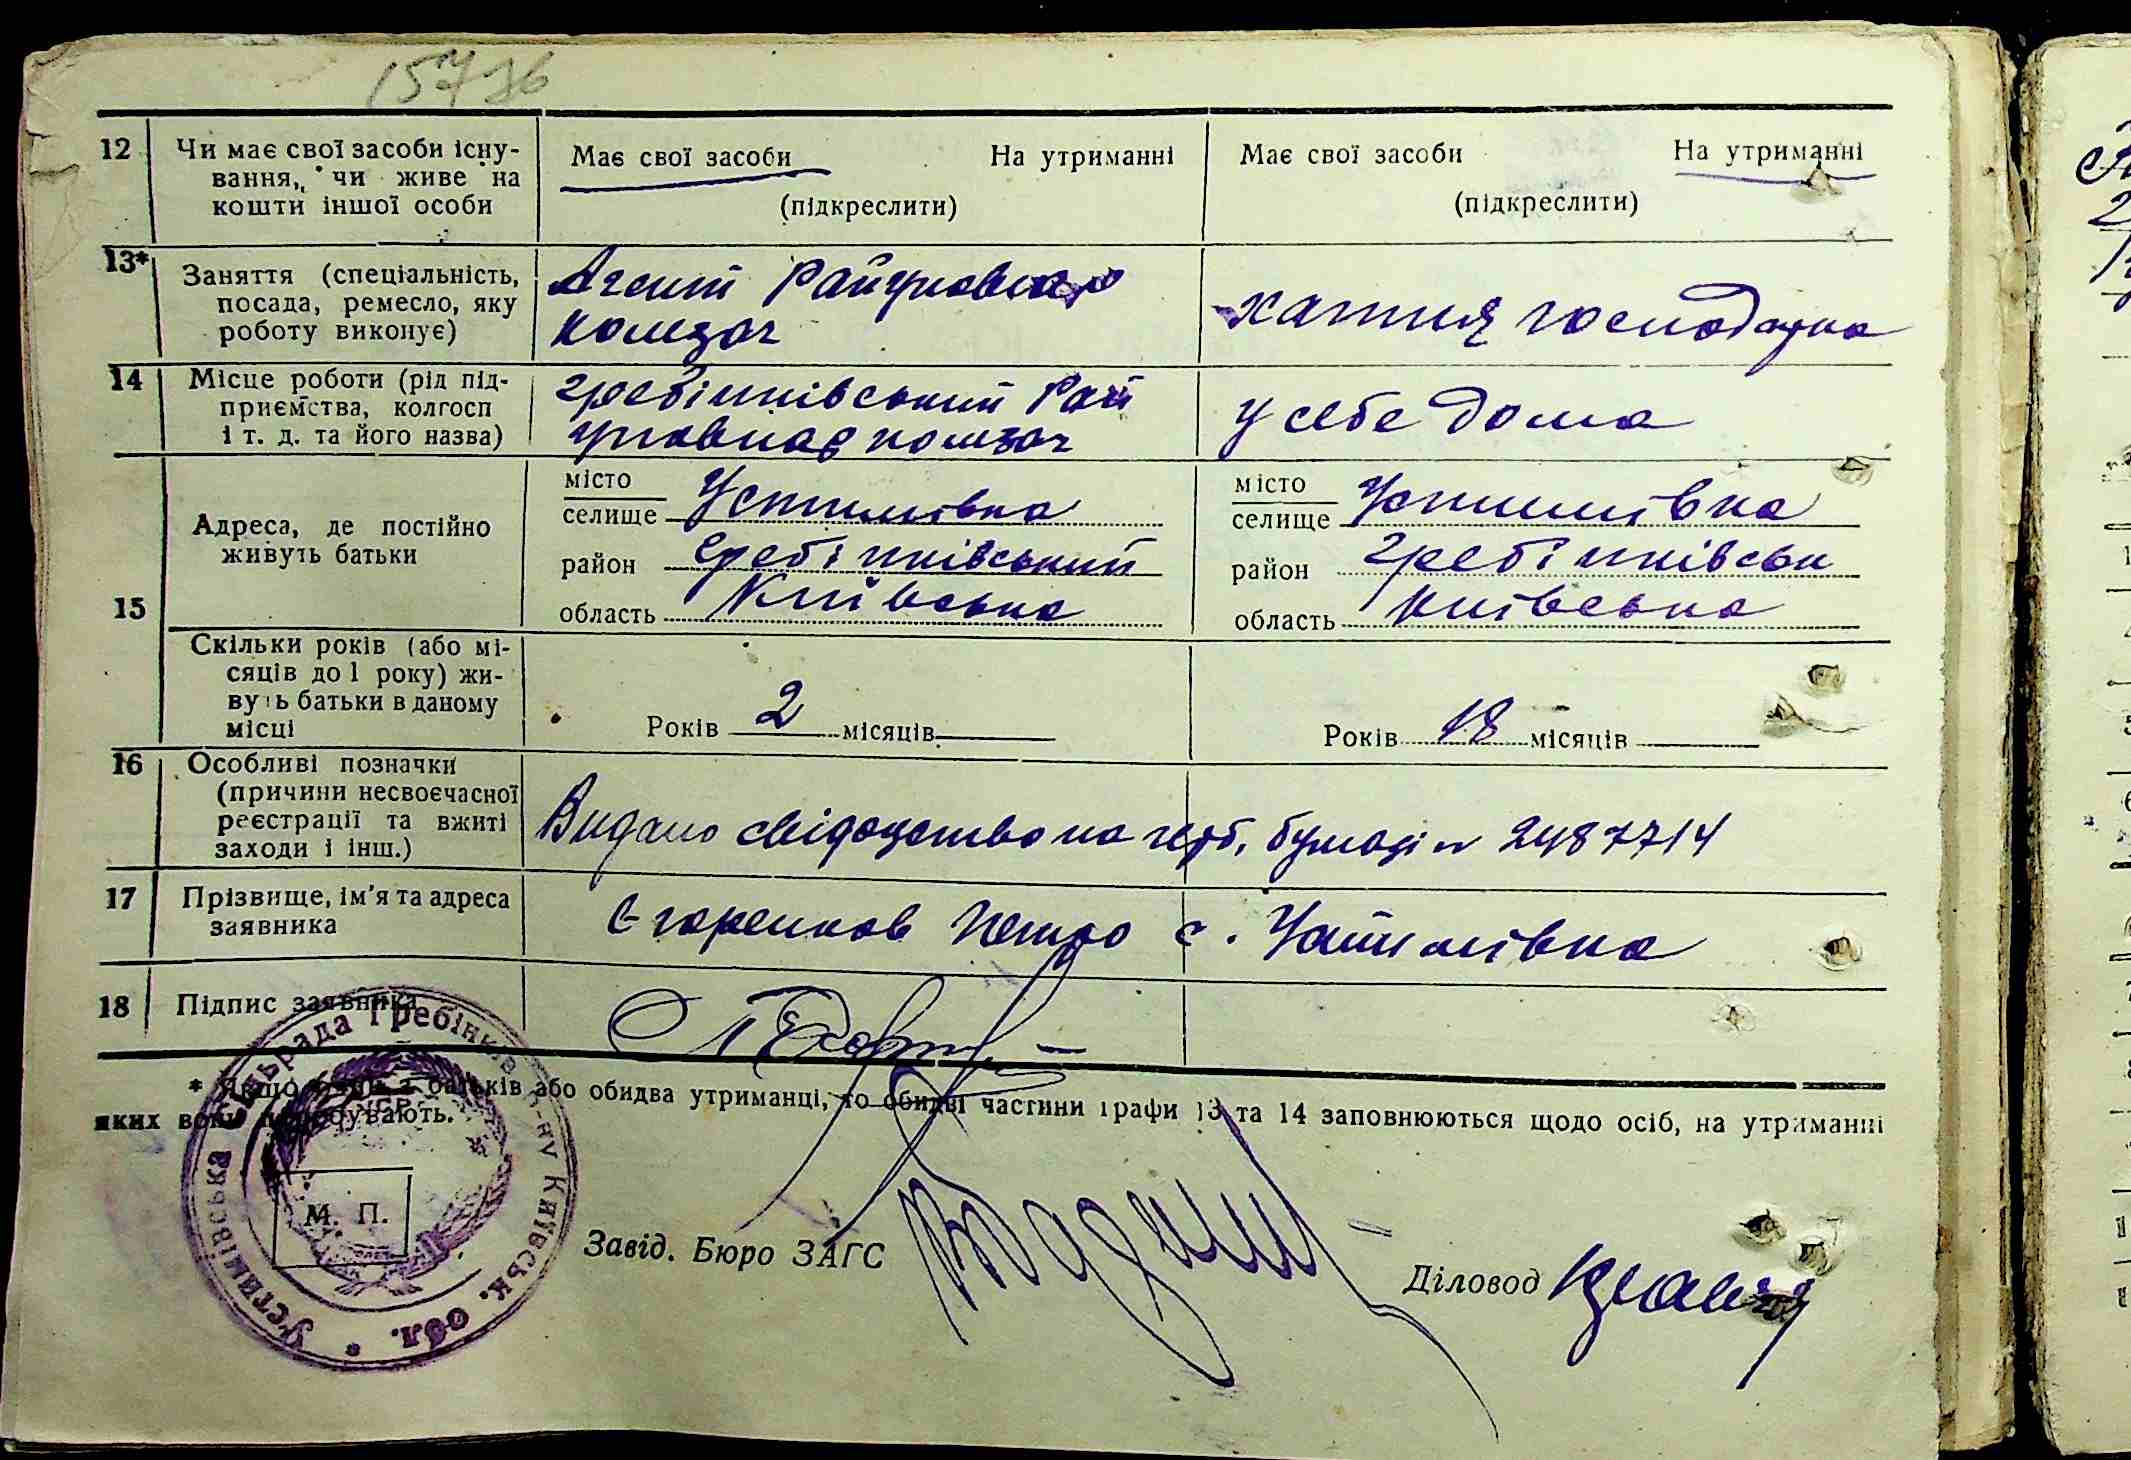 15776
12 Чи має свої засоби існу-
вання, чи живе на
кошти іншої особи
Має свої засоби На утриманні
(підкреслити)
Має свої засоби На утриманні
(підкреслити)
13* Заняття (спеціальність,
посада, ремесло, яку
роботу виконує)
Агент Райуповнар
комзаг
хатня господарка
14 Місце роботи (рід під-
приємства, колгосп
і т. д. та його назва)
гребінківський Рай
уповнар комзаг
у себе дома
15 Адреса, де постійно
живуть батьки
місто
селище Устимівка
район гребінківський
область Київська
місто
селище Устимівка
район гребінківськи
область Київська
Скільки років (або мі-
сяців до 1 року) жи-
вуть батьки в даному
місці
Років 2 місяців
Років 18 місяців
16 Особливі позначки
(причини несвоєчасної
реєстрації та вжиті
заходи і інш.)
Видано свідоцтво на герб. бумазі № 2487714
17 Прізвище, ім'я та адреса
заявника
Єгоренков Петро с. Устимівка
18 Підпис заявника
* Якщо один з батьків або обидва утриманці, то обидві частини графи 13 та 14 заповнюються щодо осіб, на утриманні
яких вони перебувають.
М. П.
Устимівська сільрада Гребінків. р-ну Київськ. обл.
Завід. Бюро ЗАГС
Діловод